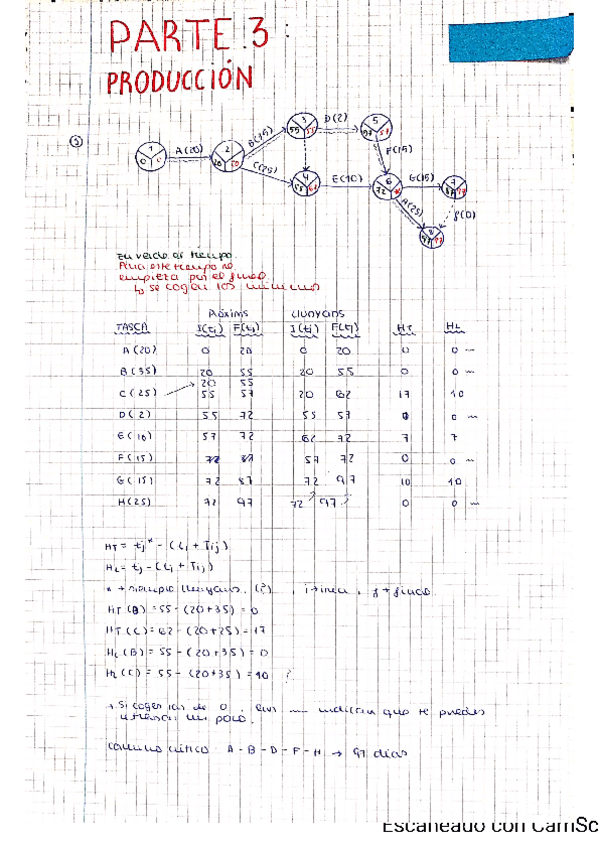 PARTE 3:
PRODUCCIÓN
3
D(2)
5
1
A(20)
2
B(35)
C(25)
F(15)
4
E(10)
6
72
G(15)
H(25)
f(0)
En verde el tiempo.
empieza por el final
↳ se cogen los mínimos
Pròxims Llunyans
TASCA I(ti) F(tj) I(ti) F(tj) HT HL
A(20) 0 20 0 20 0 0
B(35) 20 55 20 55 0 0
20 55
C(25) 55 57 20 62 17 10
D(2) 55 72 55 57 0 0
E(10) 57 72 62 72 7 7
F(15) 72 87 57 72 0 0
G(15) 72 87 72 97 10 10
H(25) 72 97 72? 97? 0 0
HT = tj* - (ti + Tij)
HL = tj - (ti + Tij)
* → siempre llunyans. (?), i → inicial, j → final
HT(B) = 55 - (20+35) = 0
HT(C) = 62 - (20+25) = 17
HL(B) = 55 - (20+35) = 0
HL(C) = 55 - (20+35) = 10 ?
→ Si coges las de 0, indican que te puedes
un poco.
Camino crítico: A - B - D - F - H → 97 días
Escaneado con CamSc